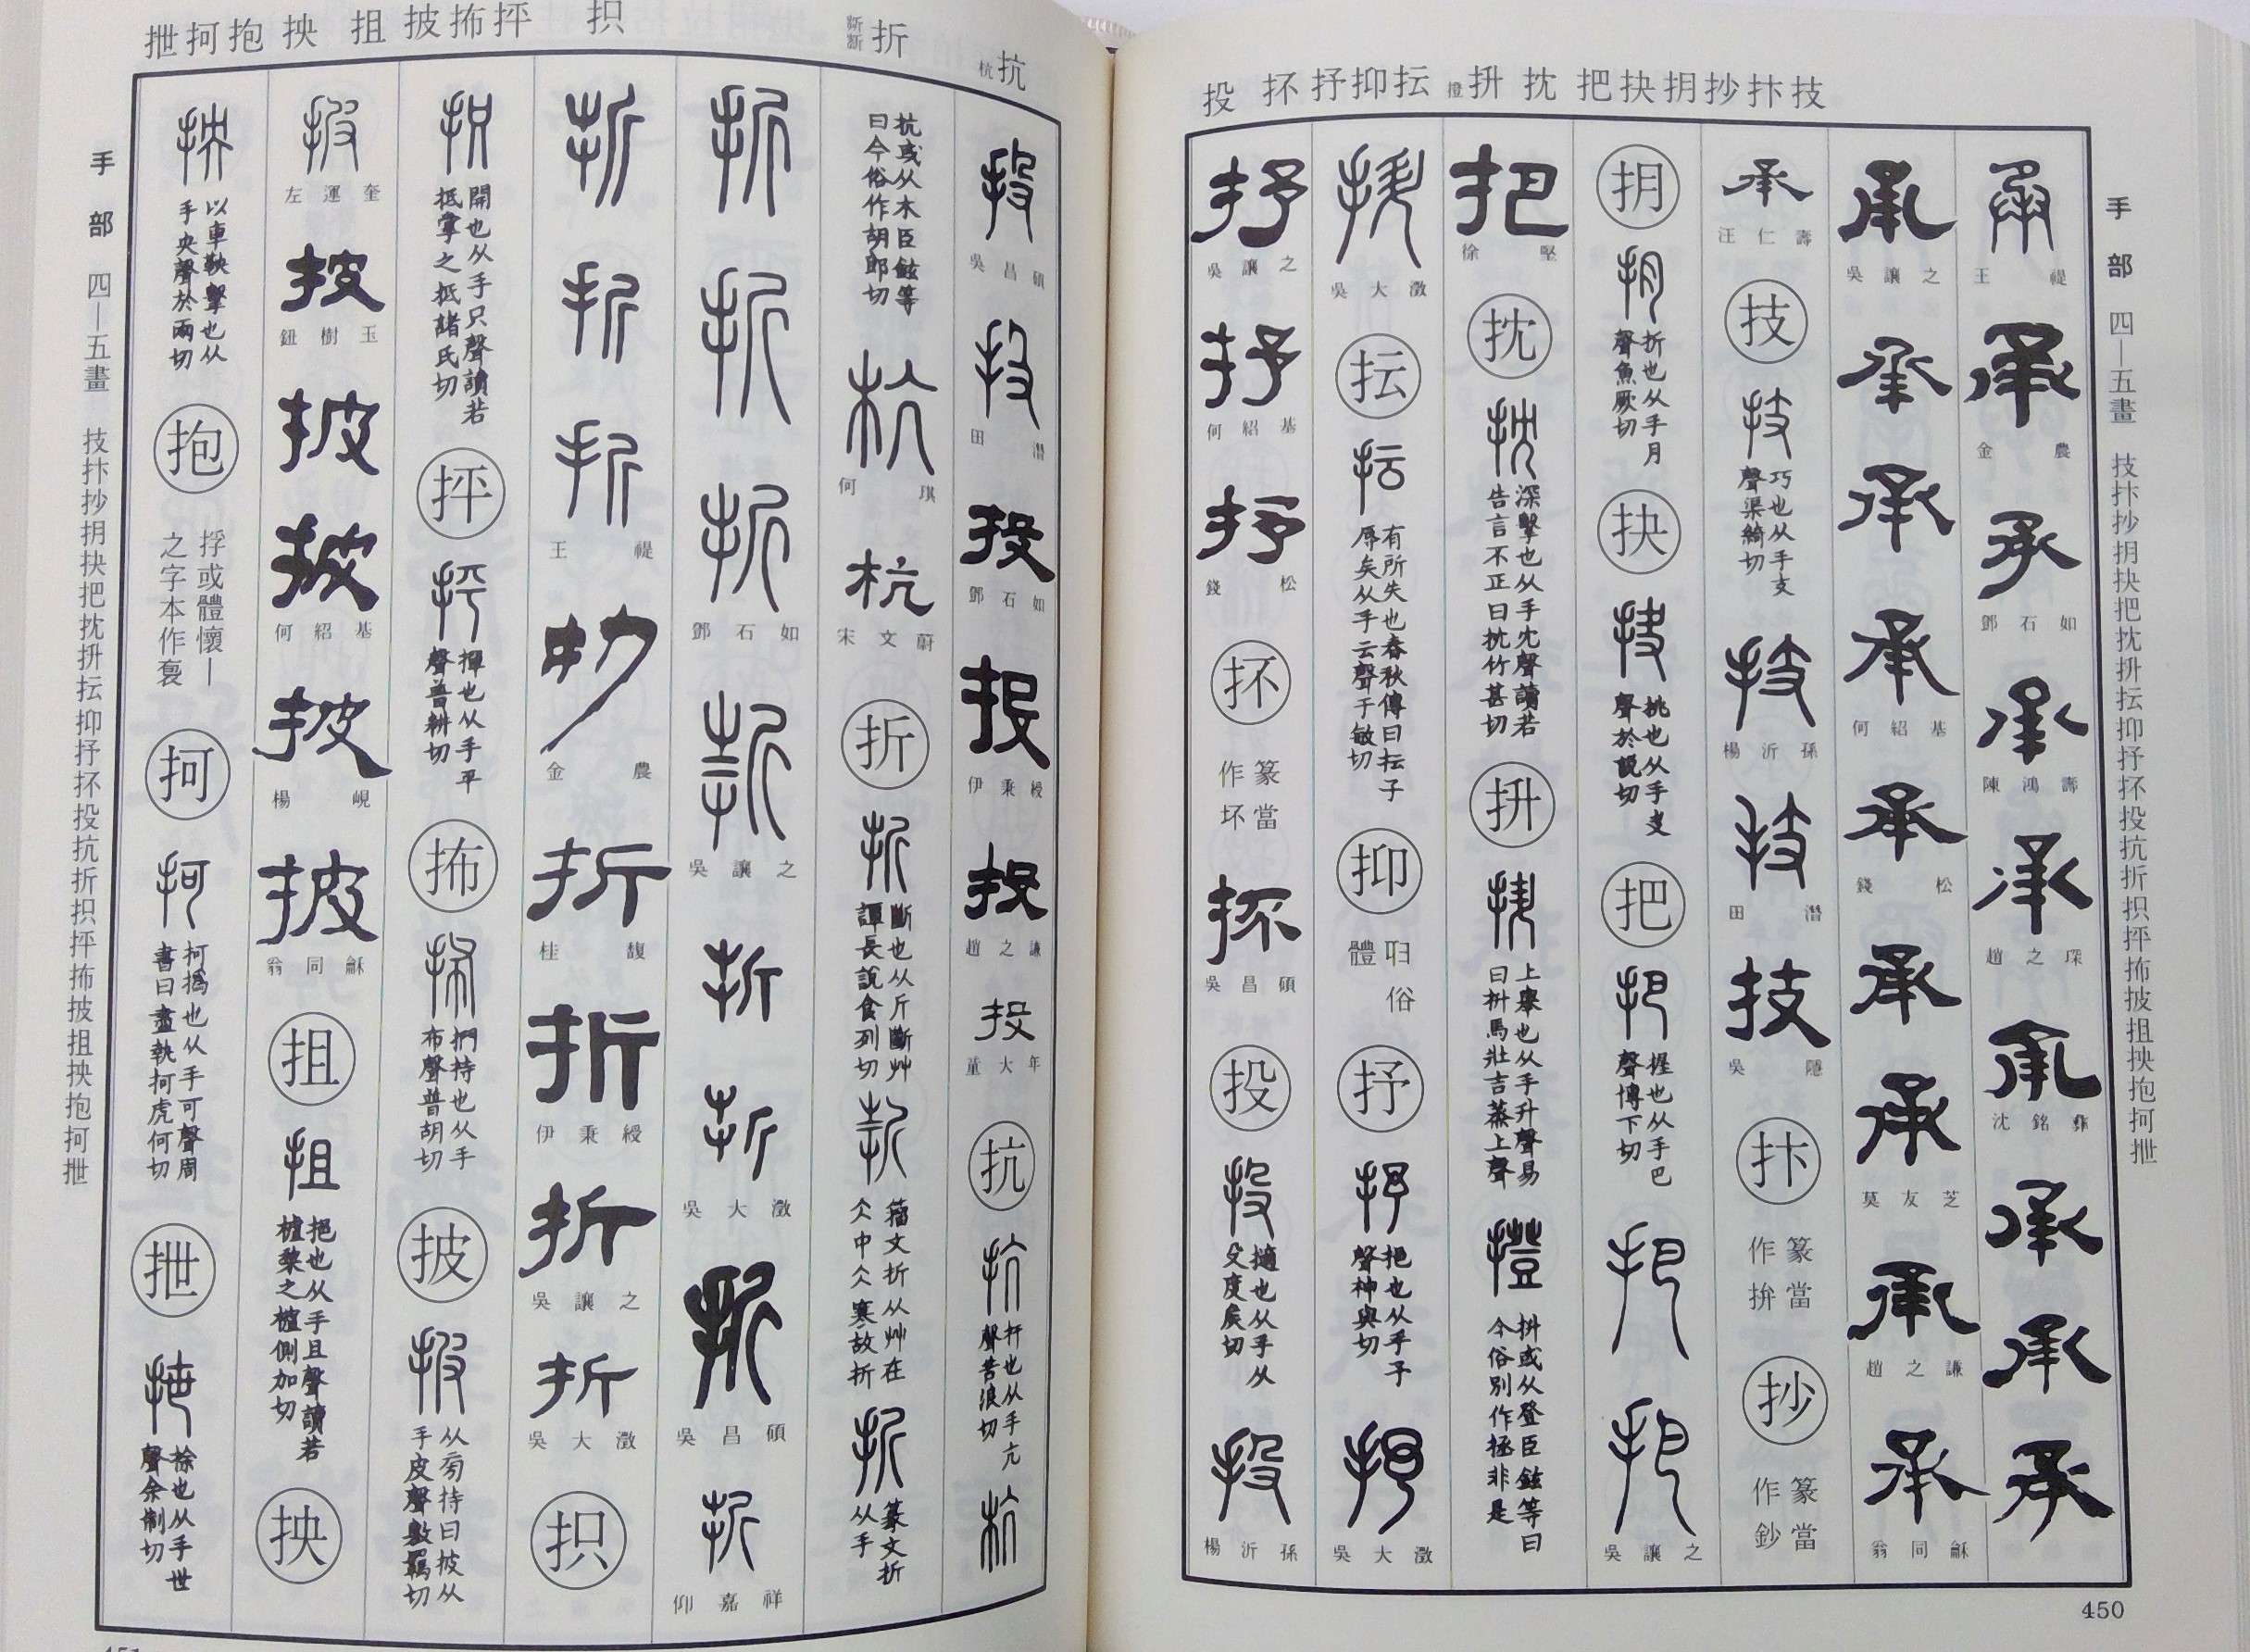 投 抔抒抑抎撜抍 抌 把抉抈抄抃技
手部 四—五畫 技抃抄抈抉把抌抍抎抑抒抔投抗折抧抨抪披抯抰抱抲抴
承 王禔
承 金農
承 鄧石如
承 陳鴻壽
承 趙之琛
承 沈銘彝
承
承
承
承 吳讓之
承
承
承 何紹基
承 錢松
承
承 莫友芝
承 趙之謙
承 翁同龢
承 汪仁壽
技
技 巧也从手支聲渠綺切
技 楊沂孫
技 田潛
技 吳隱
抃
篆當作拚
抄
篆當作鈔
抈
抈 折也从手月聲魚厥切
抉
抉 挑也从手夬聲於說切
把
把 握也从手巴聲博下切
把
把 吳讓之
把 徐堅
抌
抌 深擊也从手冘聲讀若告言不正曰抌竹甚切
抍
抍 上舉也从手升聲易曰抍馬壯吉蒸上聲
撜 抍或从登臣鉉等曰今俗別作拯非是
抍 吳大澂
抎
抎 有所失也春秋傳曰抎子辱矣从手云聲于敏切
抑
俗體
抒
抒 挹也从手予聲神與切
抒 吳大澂
抒 吳讓之
抒 何紹基
抒 錢松
抔
篆當作坏
抔 吳昌碩
投
投 擿也从手从殳度矦切
投 楊沂孫
450
抴抲抱 抰 抯 披抪抨 抧 折 抗杭
投 吳昌碩
投 田潛
投 鄧石如
投 伊秉綬
投 趙之謙
投 童大年
抗
抗 扞也从手亢聲苦浪切
杭
杭或从木臣鉉等曰今俗作胡郎切
杭 何琪
杭 宋文蔚
折
折 斷也从斤斷艸譚長說食列切
折 籀文折从艸在仌中仌寒故折
折 篆文折从手
折
折
折 鄧石如
折 吳讓之
折
折 吳大澂
折 吳昌碩
折 仰嘉祥
折
折
折 王禔
折 金農
折 桂馥
折 伊秉綬
折 吳讓之
折 吳大澂
抧
抧 開也从手只聲讀若抵掌之抵諸氏切
抨
抨 撣也从手平聲普耕切
抪
抪 捫持也从手布聲普胡切
披
披 从旁持曰披从手皮聲敷羈切
披 左運奎
披 鈕樹玉
披
披 何紹基
披 楊峴
披 翁同龢
抯
抯 挹也从手且聲讀若樝棃之樝側加切
抰
抰 以車鞅擊也从手央聲於兩切
抱
捊或體懷—之字本作袌
抲
抲 抲撝也从手可聲周書曰盡執抲虎何切
抴
抴 捈也从手世聲余制切
手部 四—五畫 技抃抄抈抉把抌抍抎抑抒抔投抗折抧抨抪披抯抰抱抲抴